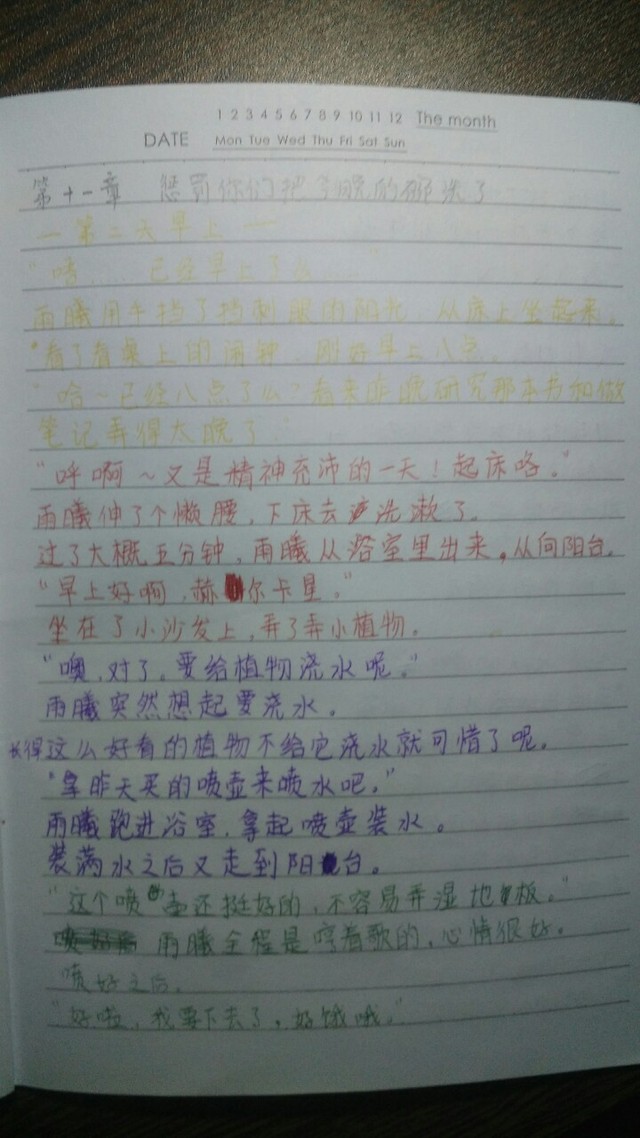 1 2 3 4 5 6 7 8 9 10 11 12 The month
DATE Mon Tue Wed Thu Fri Sat Sun
第十一章 惩罚你们把今晚的碗洗了
一第二天早上一
"唔……已经早上了么……"
雨曦用手挡了挡刺眼的阳光，从床上坐起来。
看了看桌上的闹钟，刚好早上八点。
"哈~已经八点了么？看来昨晚研究那本书和做
笔记弄得太晚了
"呼啊～又是精神充沛的一天！起床咯。"
雨曦伸了个懒腰，下床去洗漱了。
过了大概五分钟，雨曦从浴室里出来，从向阳台。
"早上好啊，赫尔卡星。"
坐在了小沙发上，弄了弄小植物。
"噢，对了，要给植物浇水呢。"
雨曦突然想起要浇水。
长得这么好看的植物不给它浇水就可惜了呢。
"拿昨天买的喷壶来喷水吧。"
雨曦跑进浴室，拿起喷壶装水。
装满水之后又走到阳台。
"这个喷壶还挺好的，不容易弄湿地板。"
雨曦全程是哼着歌的，心情很好。
喷好之后，
"好啦，我要下去了，好饿哦。"